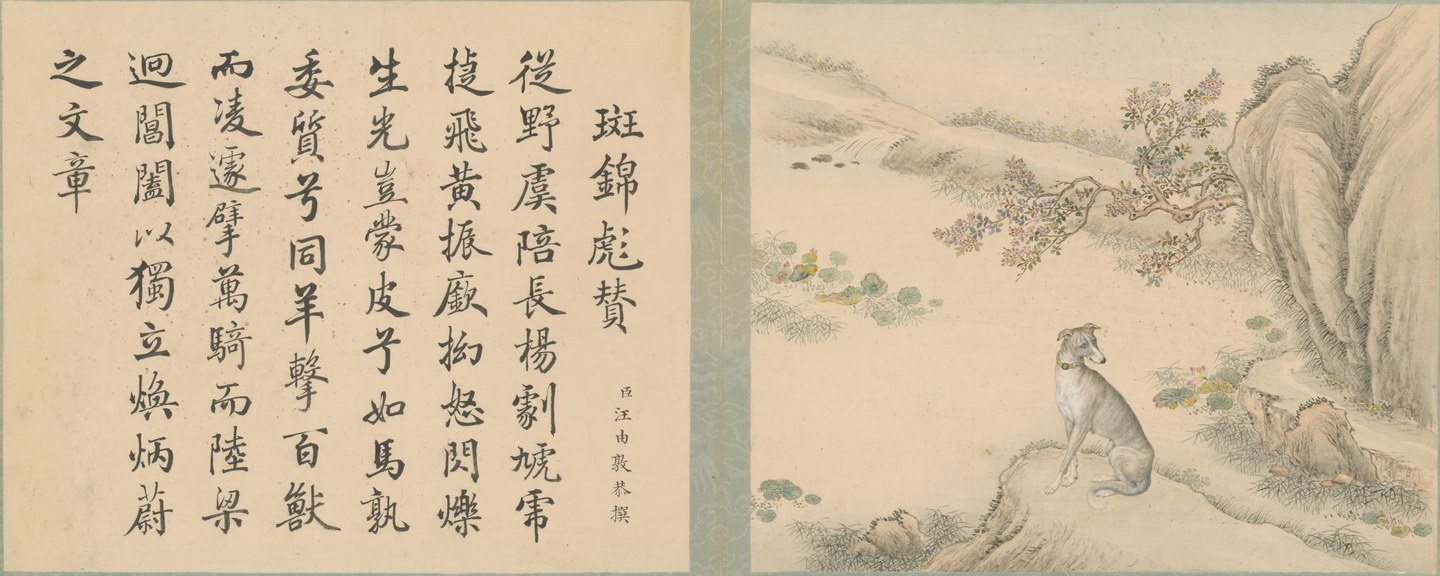 斑錦彪賛
臣汪由敦恭撰
從野虞陪長楊劇虓虎
捷飛黃振厥拗怒閃爍
生光豈蒙皮兮如馬孰
委質兮同羊擊百獸
而凌遽擘萬騎而陸梁
迥閶闔以獨立煥炳蔚
之文章